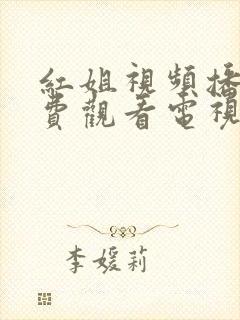 紅姐視頻播
費觀看電視
李媛莉